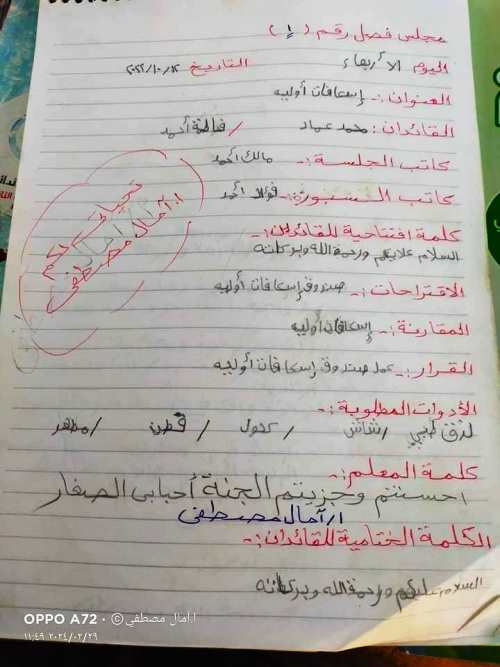 مجلس فصل رقم (١)
اليوم الأربعاء التاريخ ١٢/١٠/٢٠٢٢
العنوان :- إسعافات أولية
القائدان : محمد عماد / فاطمة أحمد
كاتب الجلسة :- مالك أحمد
كاتب السبورة :- فؤاد أحمد
كلمة افتتاحية للقائدين :-
السلام عليكم ورحمة الله وبركاته
الاقتراحات :- صندوق إسعافات أوليه
المقارنة :- إسعافات أوليه
القرار :- عمل صندوق إسعافات أوليه
الأدوات المطلوبة :-
لزق طبي / شاش / كحول / قطن / مطهر
كلمة المعلم :-
احسنتم وجزيتم الجنة أحبابى الصغار
ا/آمال مصطفى
الكلمة الختامية للقائدان :-
السلام عليكم ورحمة الله وبركاته
تحياتى لكم
ا. آمال مصطفى
OPPO A72 · © ا.أمال مصطفي
٢٠٢٤/٠٢/٢٩ ١١:٤٩